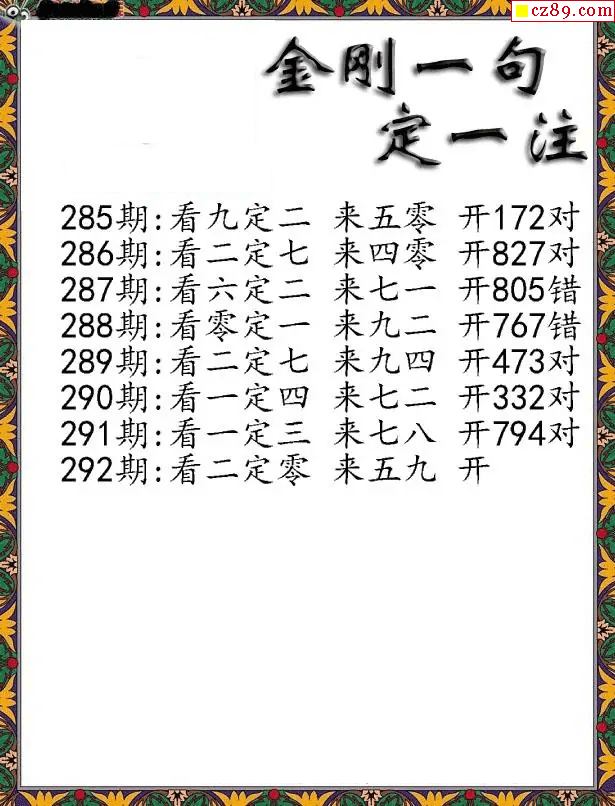 cz89.com
金刚一句
定一注
285期:看九定二 来五零 开172对
286期:看二定七 来四零 开827对
287期:看六定二 来七一 开805错
288期:看零定一 来九二 开767错
289期:看二定七 来九四 开473对
290期:看一定四 来七二 开332对
291期:看一定三 来七八 开794对
292期:看二定零 来五九 开